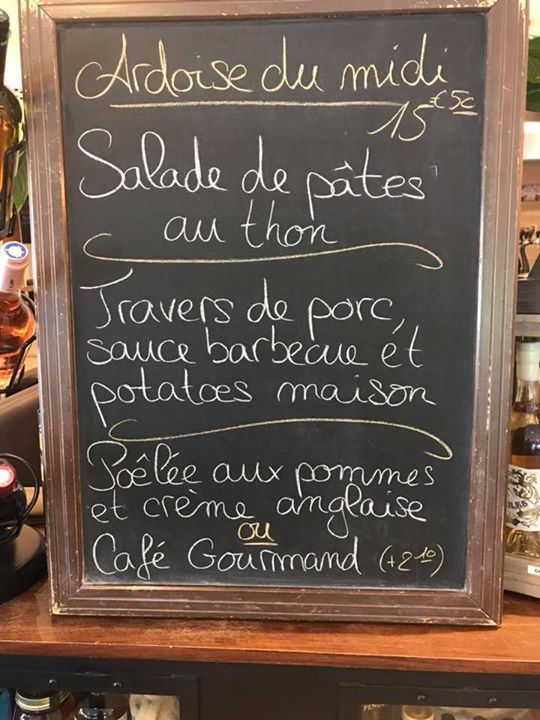 Ardoise du midi
15€50
Salade de pâtes
au thon
Travers de porc,
sauce barbecue et
potatoes maison
Poêlée aux pommes
et crème anglaise
ou
Café Gourmand (+2 10)